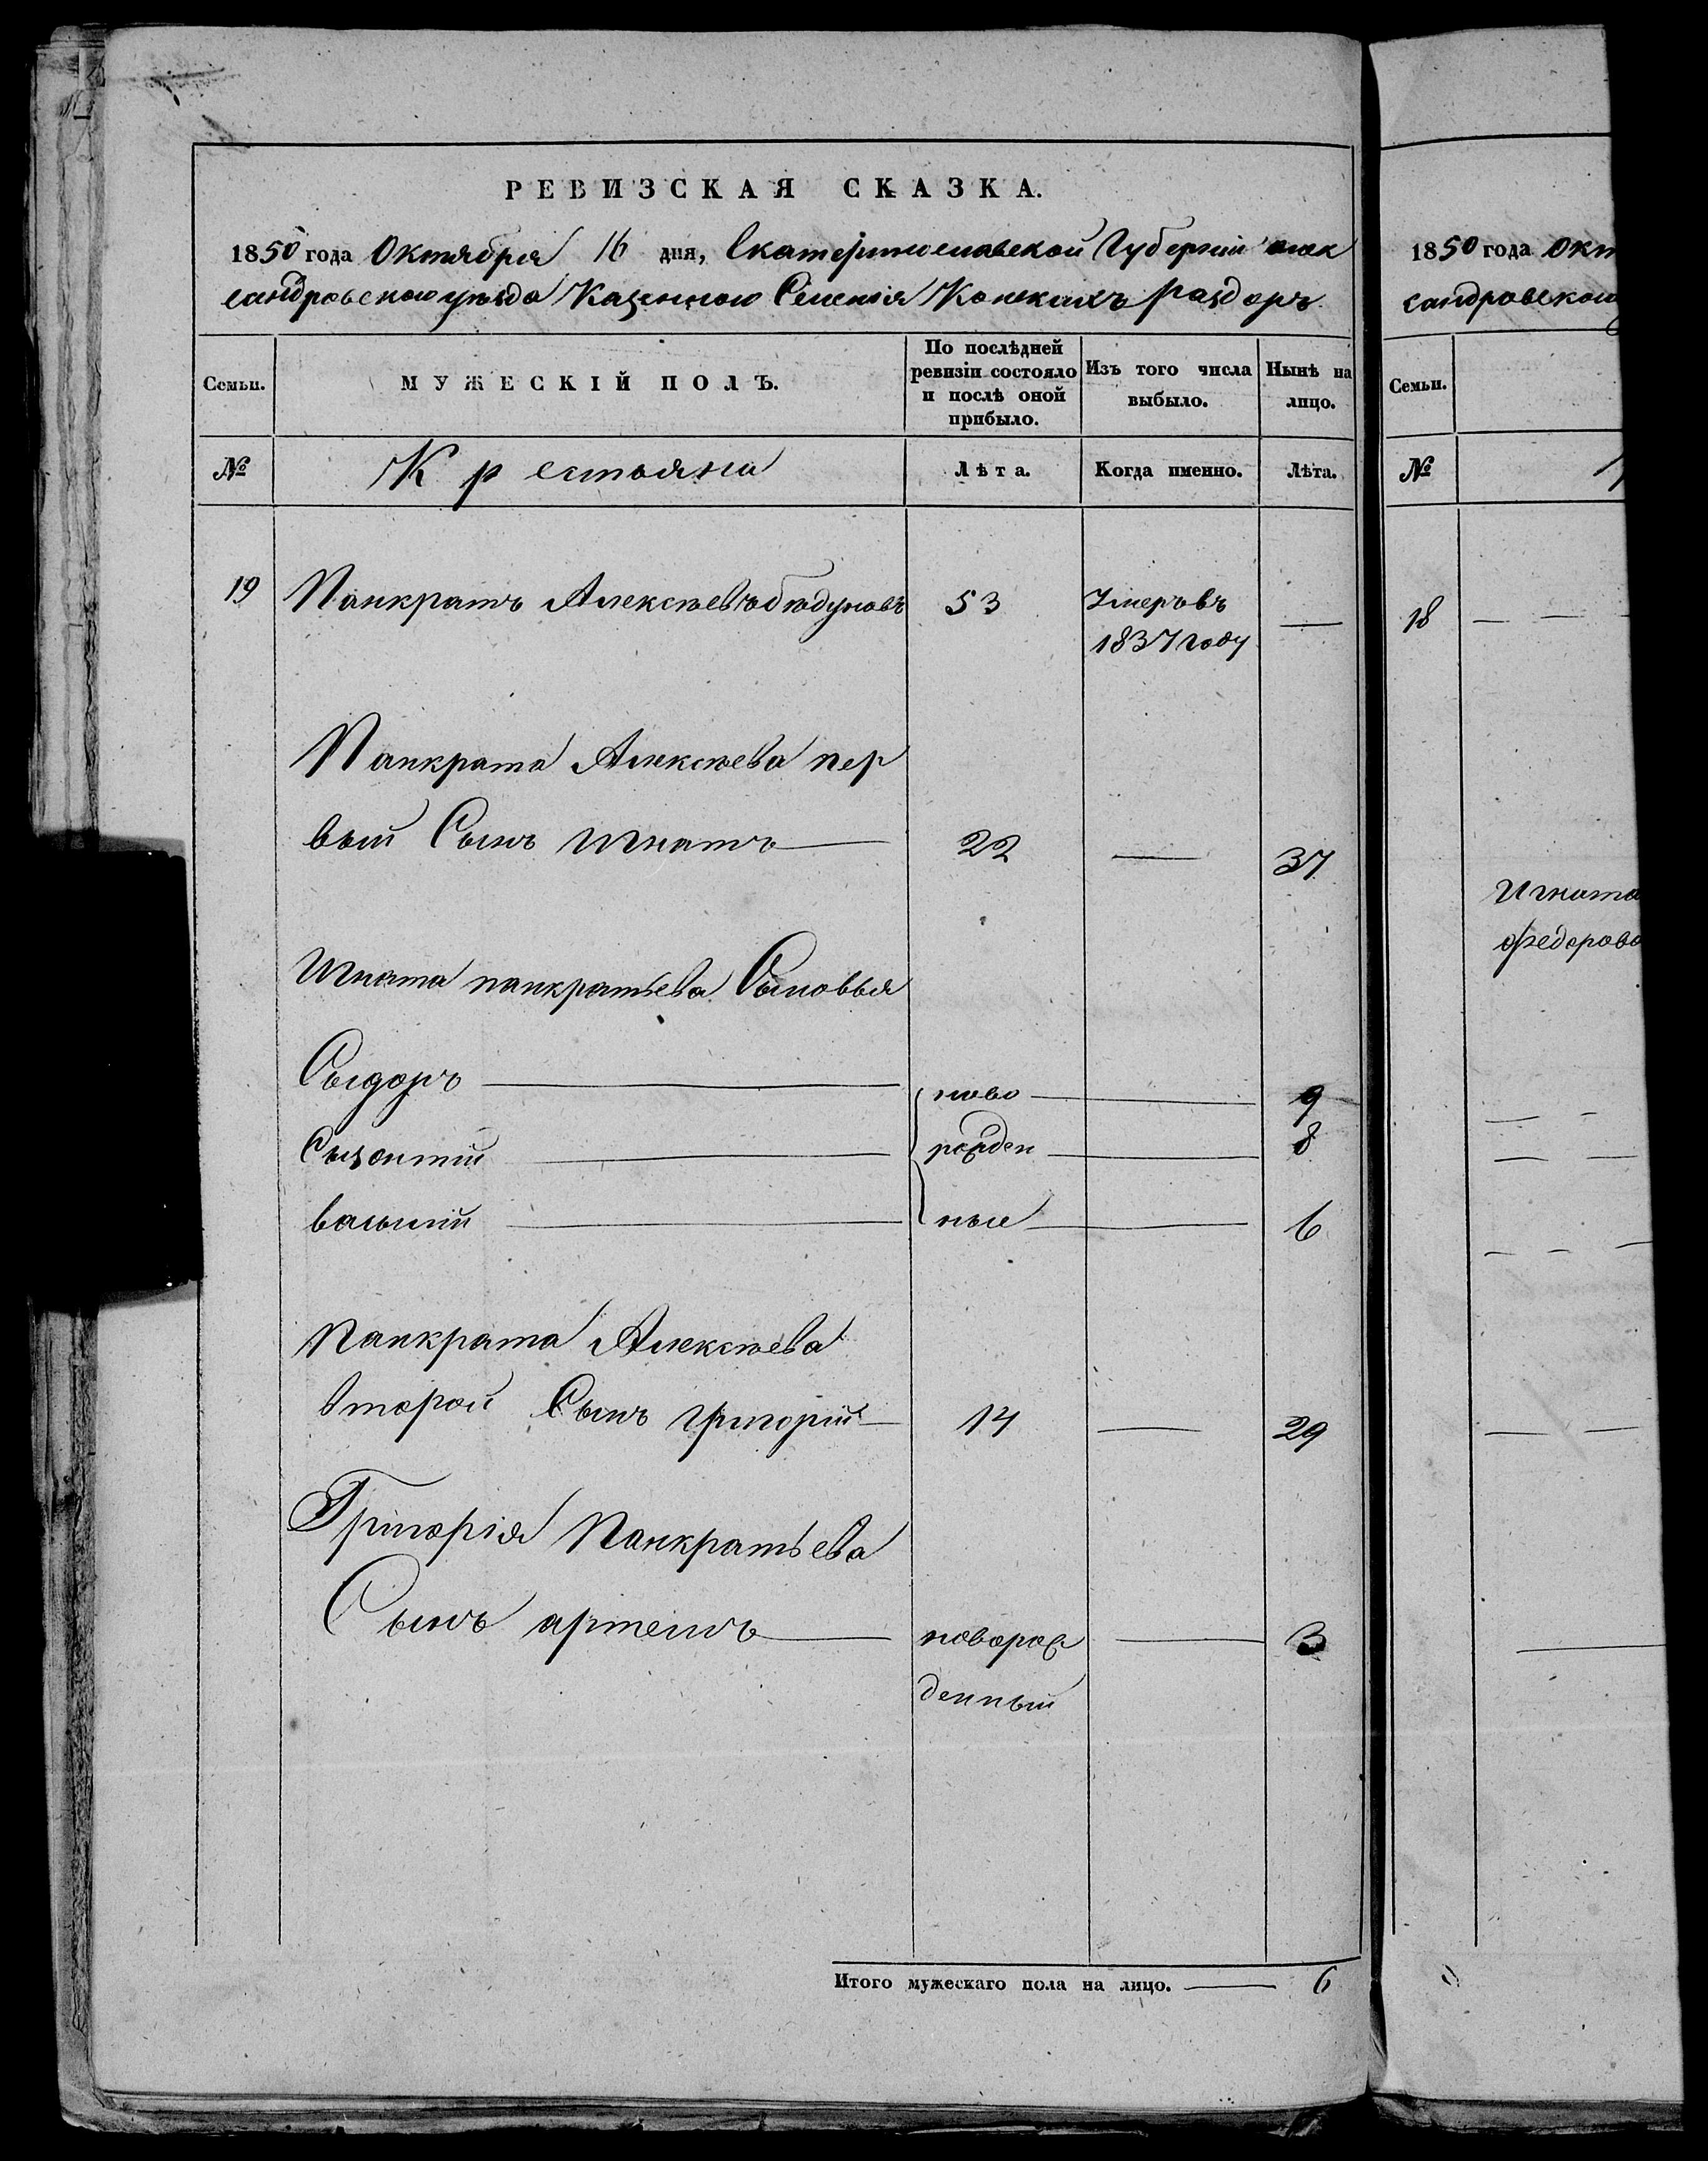 РЕВИЗСКАЯ СКАЗКА.
1850 года Октября 16 дня, Екатеринославской Губернии Алек
сандровского уезда Казенного Селения Конскихъ раздоръ
Семьи.
МУЖЕСКІЙ ПОЛЪ.
По послѣдней ревизіи состояло и послѣ оной прибыло.
Изъ того числа выбыло.
Нынѣ на лицо.
№
Крестьяна
Лѣта.
Когда именно.
Лѣта.
19 Панкратъ Алексѣевъ 53 Умеръ въ —
1837 году
Панкрата Алексѣева пер
вый Сынъ Игнатъ — 22 — 37
Игната панкратьева Сыновья
Сыдоръ — ново — 9
Сызонтий — рожден — 8
василий — ные — 6
Панкрата Алексѣева
Второй Сынъ григорий — 14 — 29
Григорія Панкратьева
Сынъ артемъ — еворож — 3
денный
Итого мужескаго пола на лицо. — 6
1850 года Окт
сандровского
Семьи.
№
18 — —
Игната
федорова